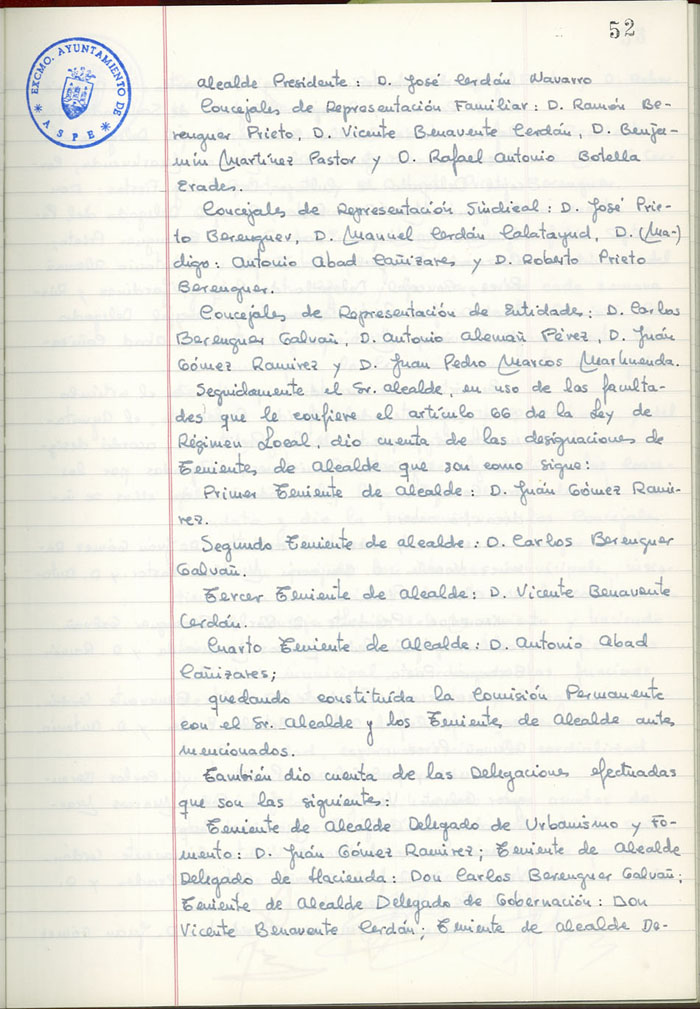 52
EXCMO. AYUNTAMIENTO DE
* ASPE *
Alcalde Presidente: D. José Cerdán Navarro
Concejales de Representación Familiar: D. Ramón Be-
renguer Prieto, D. Vicente Benavente Cerdán, D. Benja-
mín Martínez Pastor y D. Rafael Antonio Botella
Erades.
Concejales de Representación Sindical: D. José Prie-
to Berenguer, D. Manuel Cerdán Calatayud, D. (Ma-)
digo: Antonio Abad Cañizares y D. Roberto Prieto
Berenguer.
Concejales de Representación de Entidades: D. Carlos
Berenguer Galvañ, D. Antonio Alemañ Pérez, D. Juán
Gómez Ramirez y D. Juan Pedro Marcos Marhuenda.
Seguidamente el Sr. Alcalde, en uso de las faculta-
des que le confiere el artículo 66 de la Ley de
Régimen Local, dio cuenta de las designaciones de
Tenientes de Alcalde que son como sigue:
Primer Teniente de Alcalde: D. Juán Gómez Rami-
rez.
Segundo Teniente de Alcalde: D. Carlos Berenguer
Galvañ.
Tercer Teniente de Alcalde: D. Vicente Benavente
Cerdán.
Cuarto Teniente de Alcalde: D. Antonio Abad
Cañizares;
quedando constituída la Comisión Permanente
con el Sr. Alcalde y los Tenientes de Alcalde antes
mencionados.
También dio cuenta de las Delegaciones efectuadas
que son las siguientes:
Teniente de Alcalde Delegado de Urbanismo y Fo-
mento: D. Juán Gómez Ramirez; Teniente de Alcalde
Delegado de Hacienda: Don Carlos Berenguer Galvañ;
Teniente de Alcalde Delegado de Gobernación: Don
Vicente Benavente Cerdán; Teniente de Alcalde De-